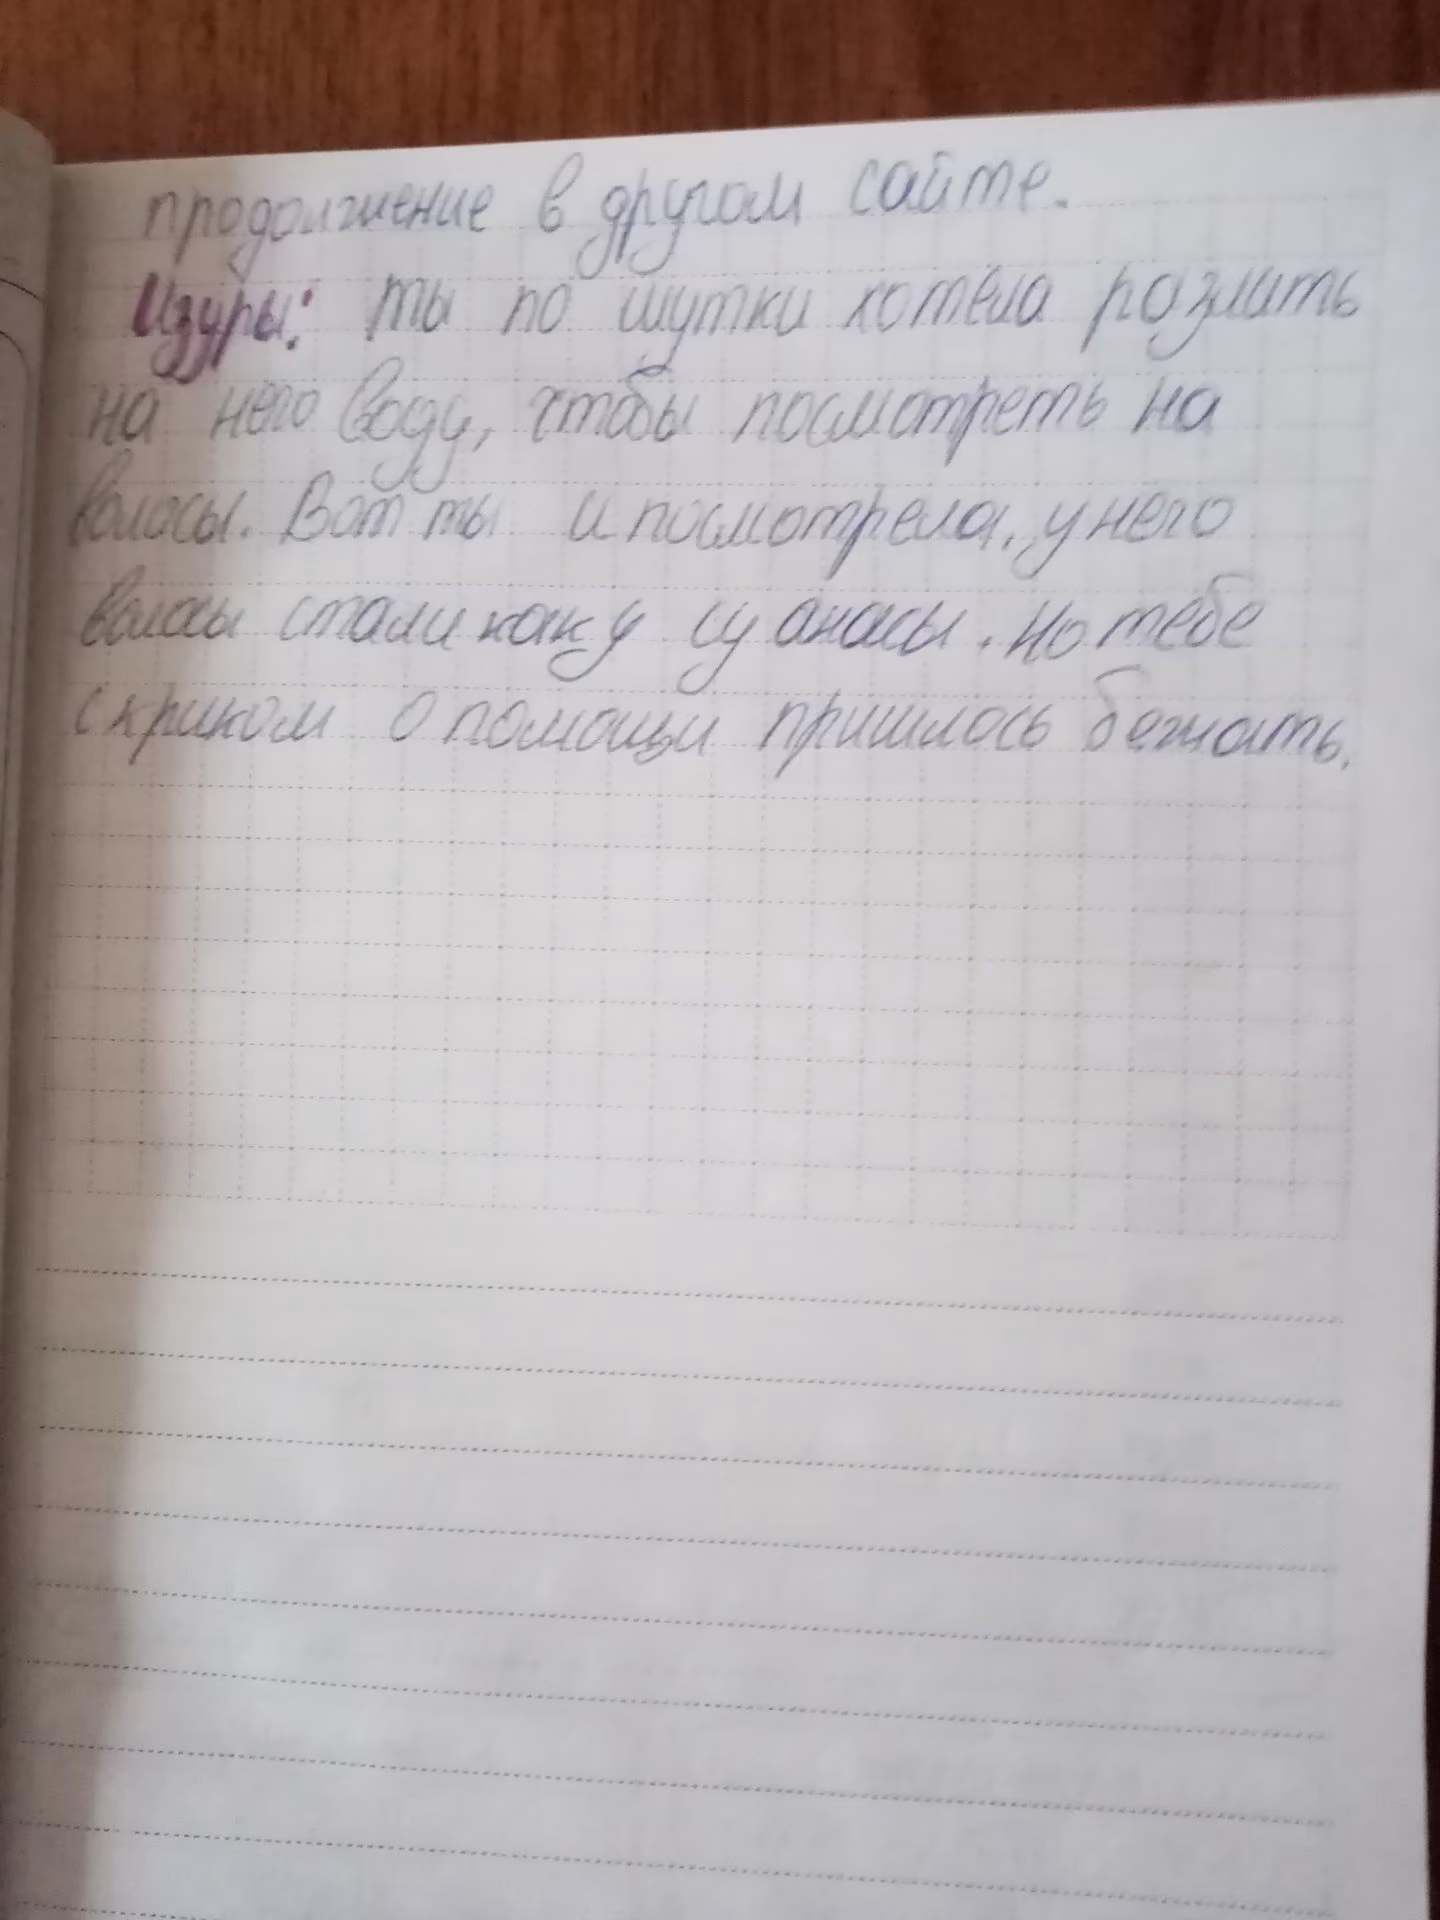 продолжение в другом сайте.
Изуры: ты по шутки хотела разлить
на него воду, чтобы посмотреть на
волосы. Вот ты и посмотрела, у него
волосы стали как у су анасы. но тебе
с криком о помощи пришлось бежать.